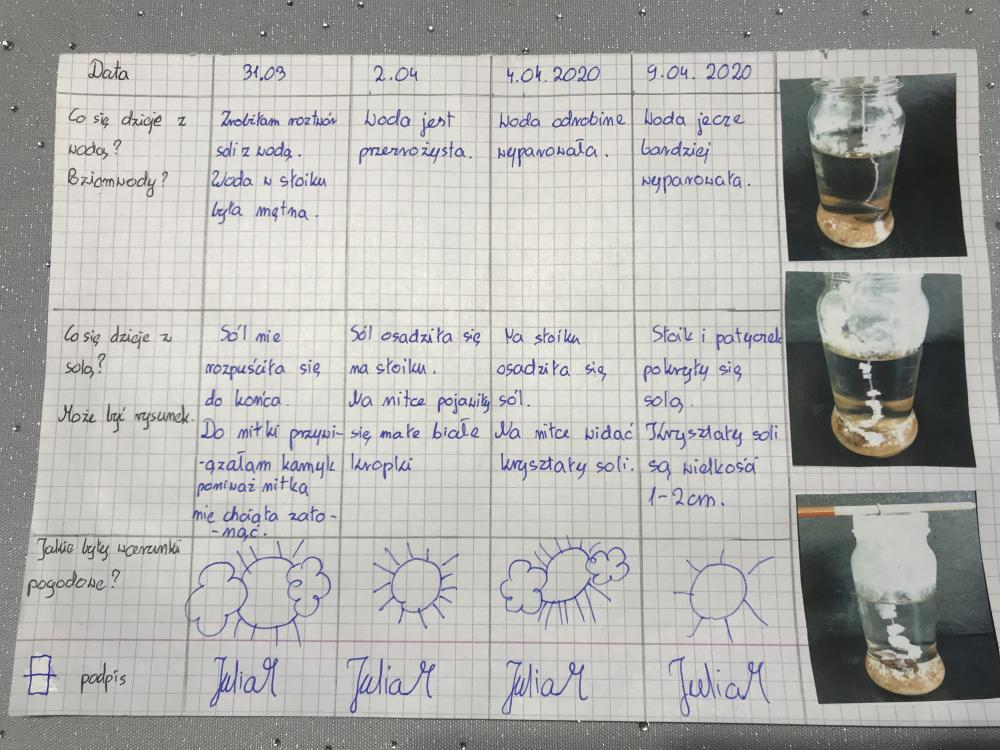 Data
31.03
2.04
4.04.2020
9.04.2020
Co się dzieje z
wodą?
Bziomwody?
Zrobiłam roztwór
soli z wodą.
Woda w słoiku
była mętna.
Woda jest
przezrożysta.
Woda odrobine
wyparowała.
Woda jecze
bardziej
wyparowała.
Co się dzieje z
solą?
Może być rysunek.
Sól nie
rozpuściła się
do końca.
Do nitki przywi-
-ązałam kamyk
poniważ nitka
nie chciała zato-
-nąć.
Sól osadziła się
na słoiku.
Na nitce pojawiły
się małe białe
kropki
Na słoiku
osadziła się
sól.
Na nitce widać
kryształy soli.
Słoik i patyczek
pokryły się
solą.
Kryształy soli
są wielkośi
1-2cm.
Jakie były warunki
pogodowe?
podpis
JuliaM
JuliaM
JuliaM
JuliaM